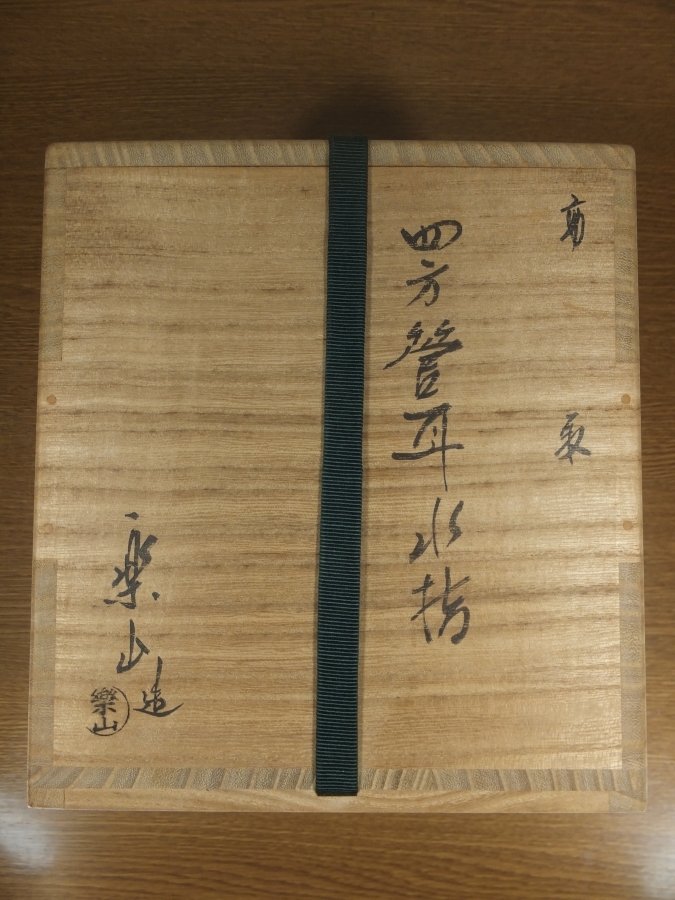 高取
四方管耳水指
楽山造
樂山